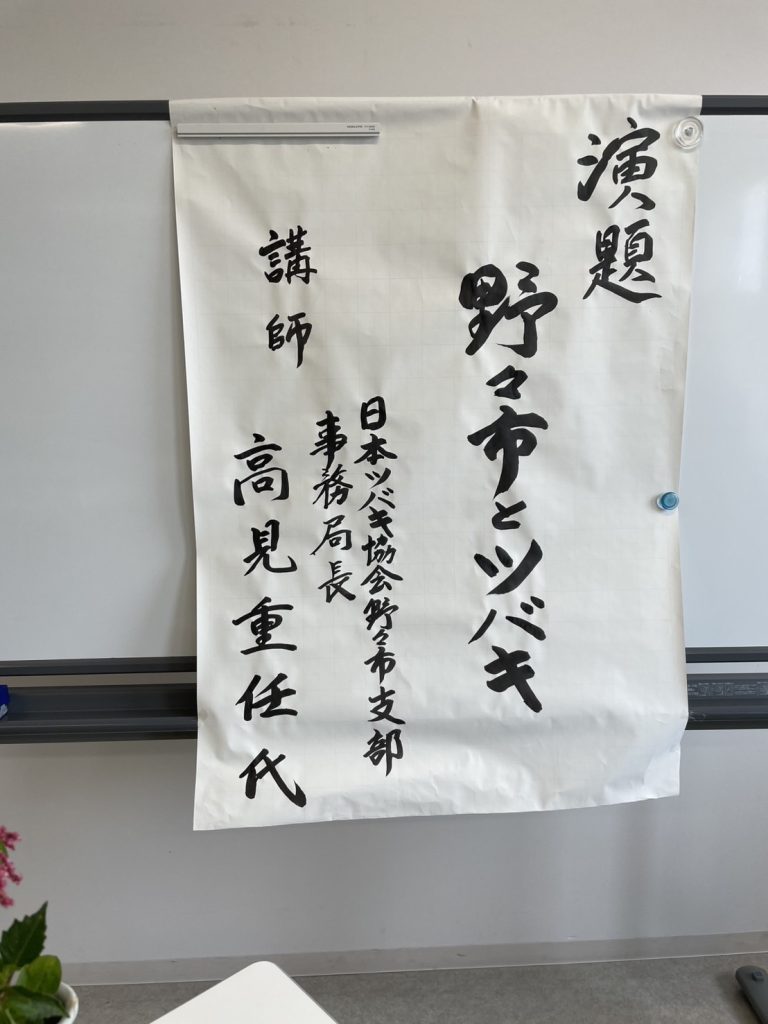 演題
野々市とツバキ
日本ツバキ協会野々市支部
事務局長
講師
高見重任代